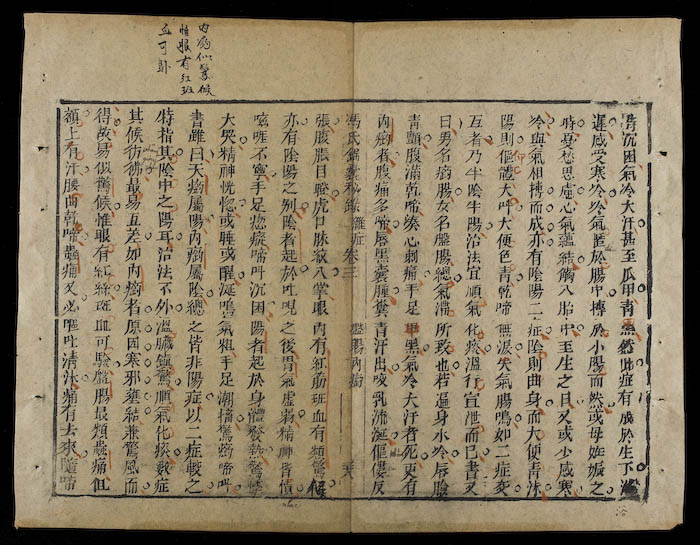 內癇似驚候
惟眼有紅斑
血可卧
滯沉困氣冷大汗甚至瓜甲青黑然此症有成於生下
遲感受寒冷冷氣匿於腸中搏於小腸而然或母姙娠之
時憂愁思慮心氣蘊結觸入胎中至生之日又或少感寒
冷與氣相搏而成亦有陰陽二症陰則曲身而大便青沫
陽則傴體大叫大便色青乾啼無淚失氣腸鳴如二症交
互者乃半陰半陽治法宜順氣化痰溫行宣泄而已書又
曰男名癇腸女名盤腸總氣滯所致也若遍身水冷唇臉
青顫腹滿乾啼綉心刺痛手足甲黑氣冷大汗者死更有
內癇者腹痛多啼唇黑囊腫糞青汗出咬乳流涎傴僂反
馮氏錦囊秘錄 雜症 卷三 盤腸內癇
張腹脹目瞪虎口脉紋入掌眼內有紅筋斑血有類驚候
亦有陰陽之別陰者起於吐呪之後胃氣虛弱精神昏憒
嗞哑不寧手足瘛瘲啼叫沉困陽者起於身體發熱驚悸
大哭精神恍惚或睡或醒涎鳴氣粗手足潮搐驚癇啼叫
書雖曰天癇屬陽內癇屬陰總之皆非陽症以二症較之
特指其陰中之陽耳治法不外溫臟鎮驚順氣化痰數症
其候彷彿最易互差如內癇者原因寒邪壅結兼驚風而
得故易似驚候惟眼有紅絲斑血可驗盤腸最類蟲痛但
額上有汗腰曲乾啼蟲痛又必嘔吐清沫痛有去來隨啼